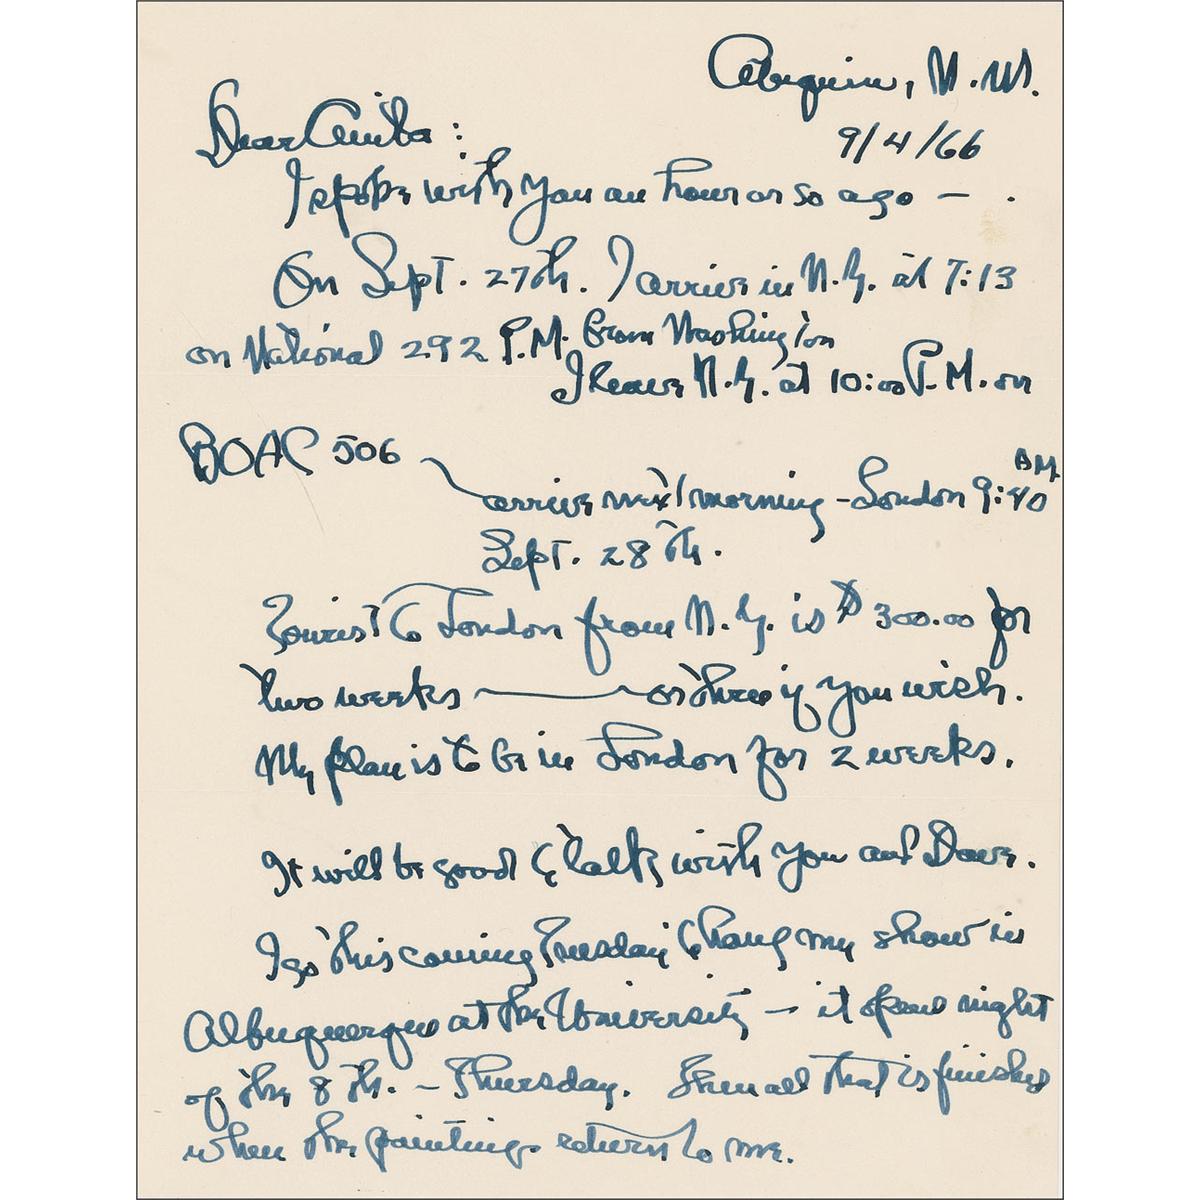 Abiquiu, N.M.
9/4/66
Dear Anita:
I spoke with you an hour or so ago —
On Sept. 27th. I arrive in N.Y. at 7:13
on National 292 P.M. from Washington
I leave N.Y. at 10:00 P.M. on
BOAC 506
arrive next morning - London 9:40 A.M.
Sept. 28th.
Tourist to London from N.Y. is $300.00 for
two weeks — or three if you wish.
My plan is to be in London for 2 weeks.
It will be good to talk with you and Dave.
I go this coming Tuesday to hang my show in
Albuquerque at the University — it opens night
of the 8th. - Thursday. Then all that is finished
when the paintings return to me.